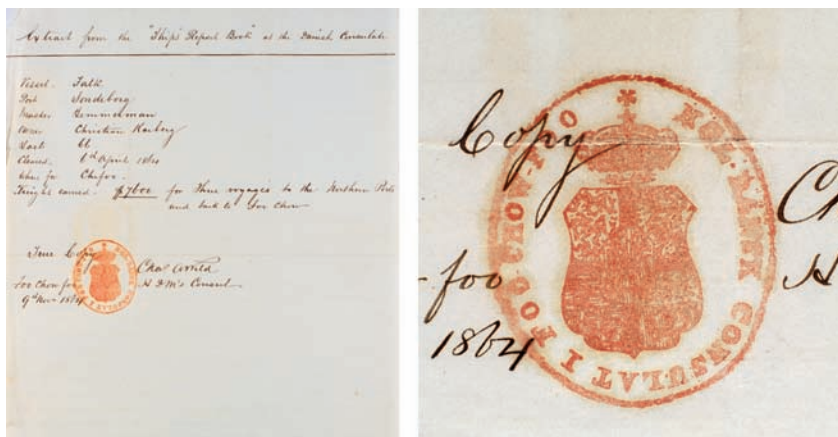 Extract from the "Ships Report Book" at the Danish Consulate
Vessel. Falk
Port Sondeborg
Master
Owner Christian Karberg
Last 66
Cleared. 6th April 1864
Where for Chefoo
Freight earned. $7600 for three voyages to the Northern Ports
and back to Foo Chow
True Copy
Foo Chow foo
9th Novr 1864
H D M's Consul
Copy
foo
1864
Ch
H
KGL. DANSK CONSULAT I FOO-CHOW-FOO